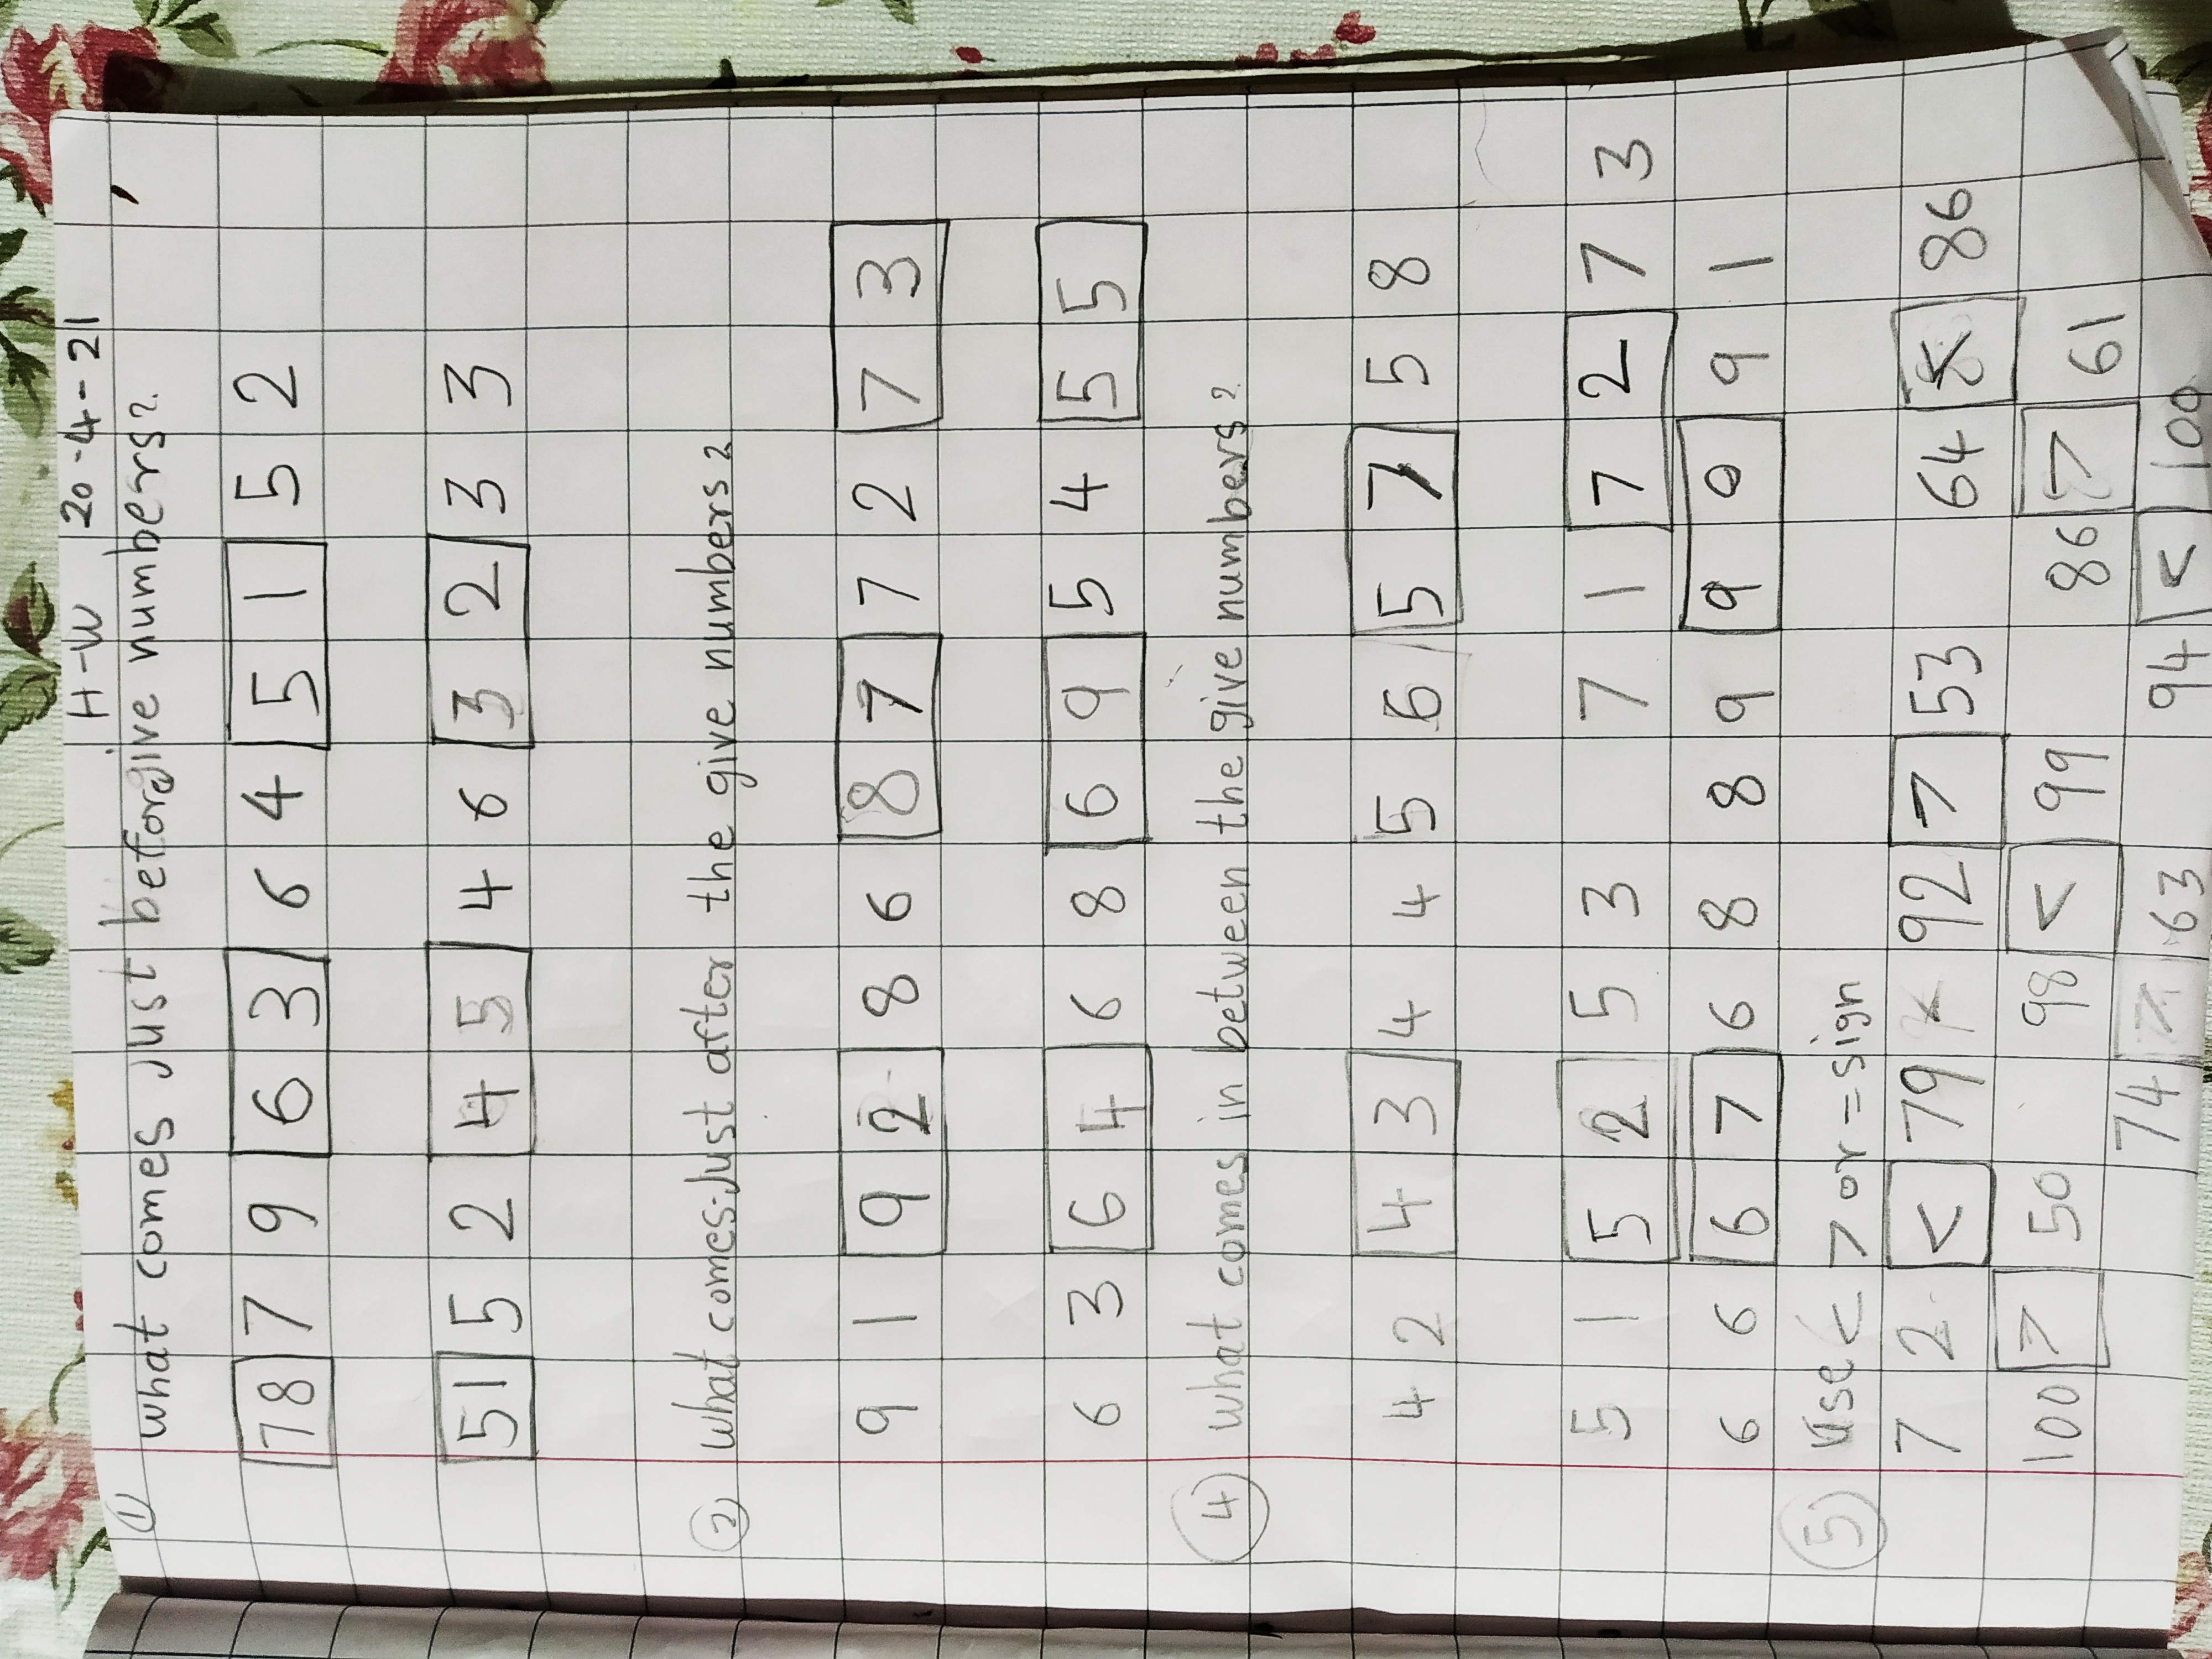 H-W 20-4-21
① What comes Just before give numbers?
78 79 63 64 51 52
51 52 45 46 32 33
② What comes Just after the give numbers?
91 92 86 87 72 73
63 64 68 69 54 55
④ what comes in between the give numbers?
42 43 44 56 57 58
51 52 53 71 72 73
66 67 68 89 90 91
⑤ Use < > or = sign
72 < 79 92 > 53 64 < 86
100 > 50 98 < 99 86 > 61
74 > 63 94 < 100